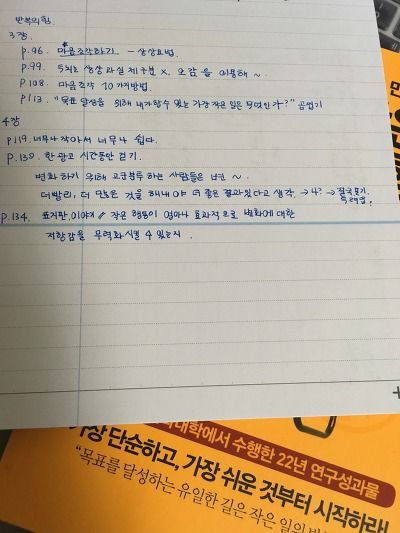 반복의 힘.
3장
p.96. 마음조각하기. - 상상요법.
p.99. 5뇌는 상상과 실제 구분 X. 오감을 이용해 ~
p108. 마음조각 10가지방법.
p113. "목표 달성을 위해 내가 할 수 있는 가장 작은 일은 무엇인가?" 곱씹기
4장
p119. 너무나 작아서 너무나 쉽다.
p.132. 한 광고 시간동안 걷기.
변화하기 위해 고군분투 하는 사람들은 ~
더 빨리, 더 많은 것을 해내야 더 좋은 결과있다고 생각. → 4? → 결국포기.
p.134. 표지판 이야기 // 작은 행동이 얼마나 효과적으로 변화에 대한
저항감을 무력화시킬 수 있는지.
대학에서 수행한 22년 연구성과물
가장 단순하고, 가장 쉬운 것부터 시작하라!
"목표를 달성하는 유일한 길은 작은 일의